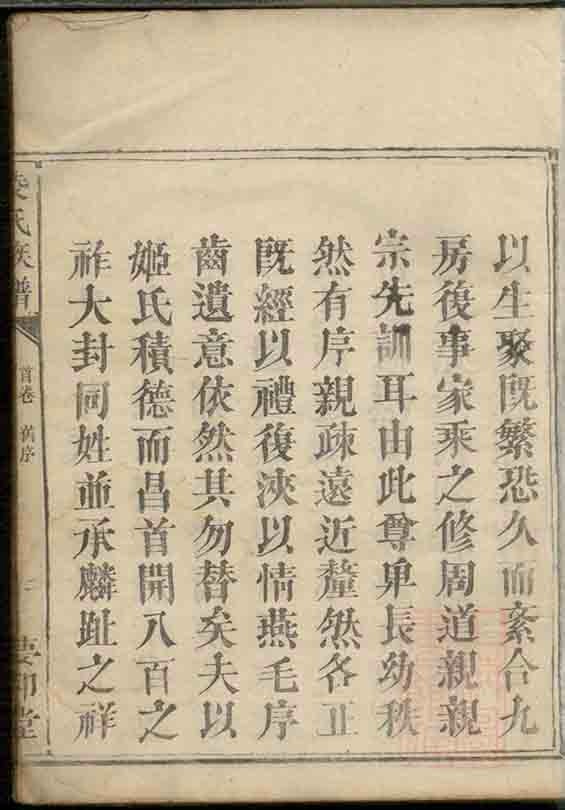 以生聚旣繁恐久而紊合九
房復事家乘之修周道親親
宗先訓耳由此尊卑長幼秩
然有序親疎遠近釐然各正
旣經以禮復浹以情燕毛序
齒遺意依然其勿替矣夫以
姬氏積德而昌首開八百之
祚大封同姓並承麟趾之祥
氏族譜
首卷 舊序
堂